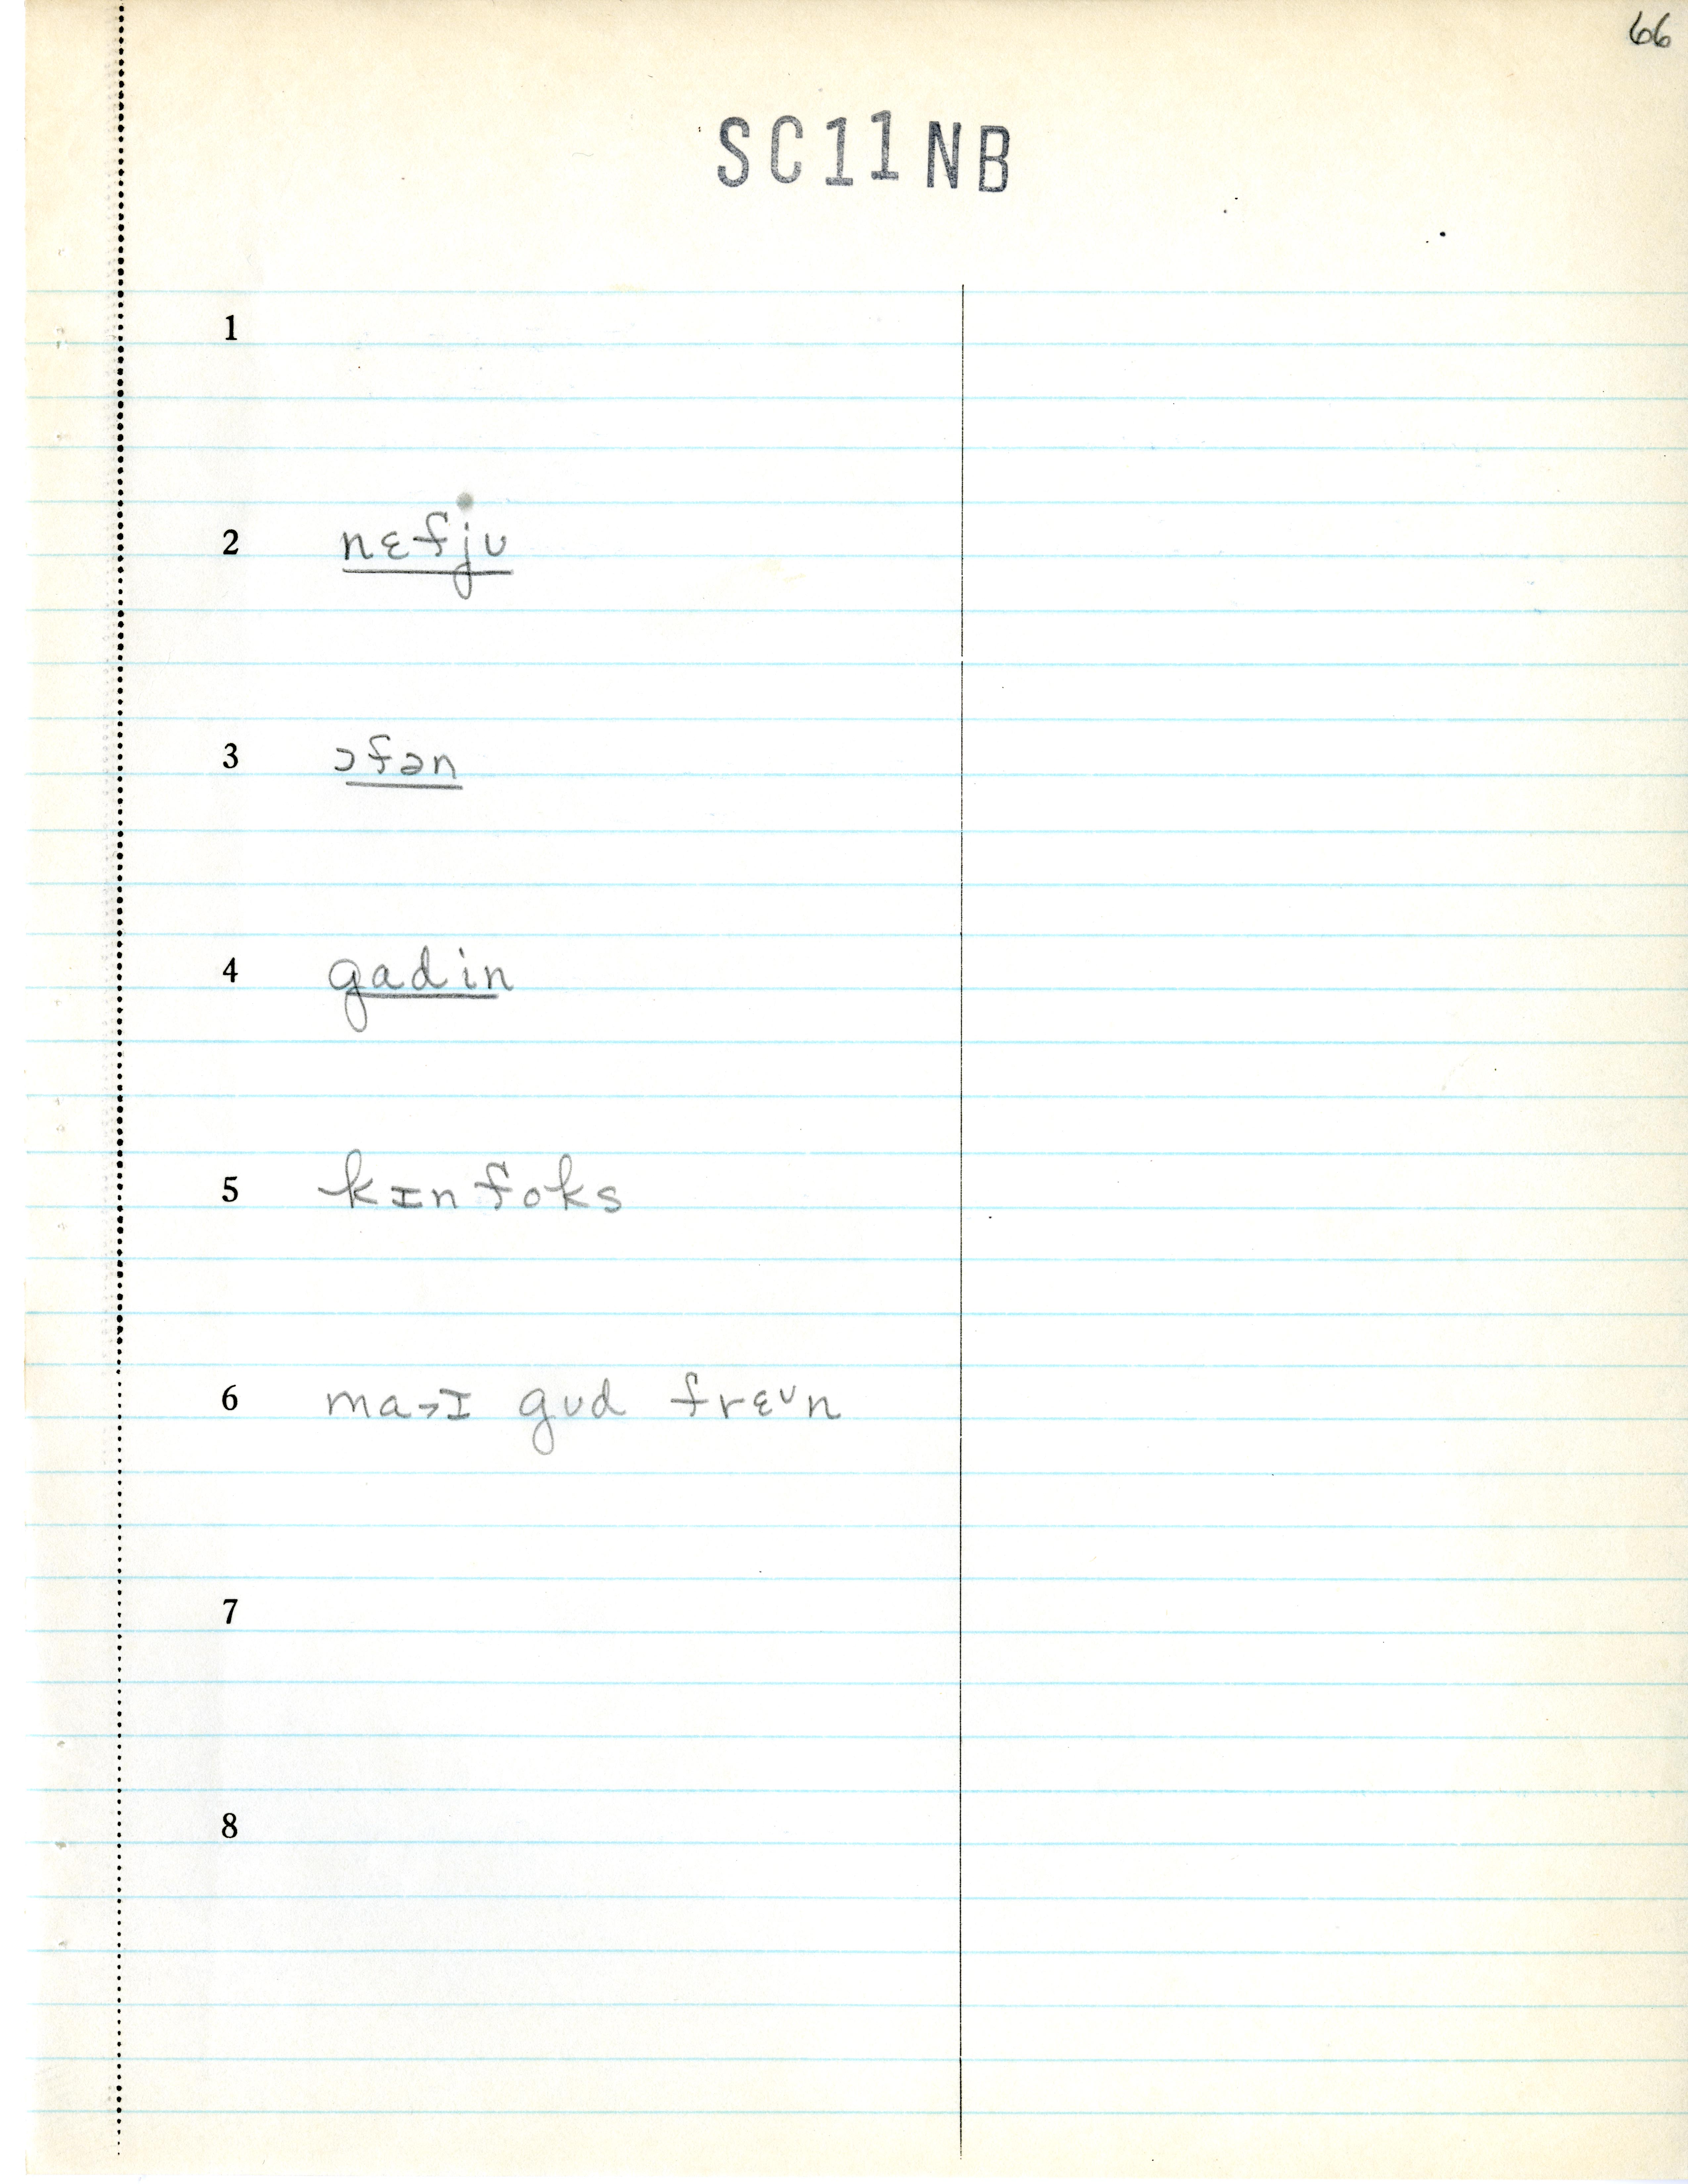 66
SC11NB
1
2 nɛfjʊ
3 ɔfən
4 gadin
5 kɪnfoks
6 ma˃ɪ gʊd frɛ˅n
7
8